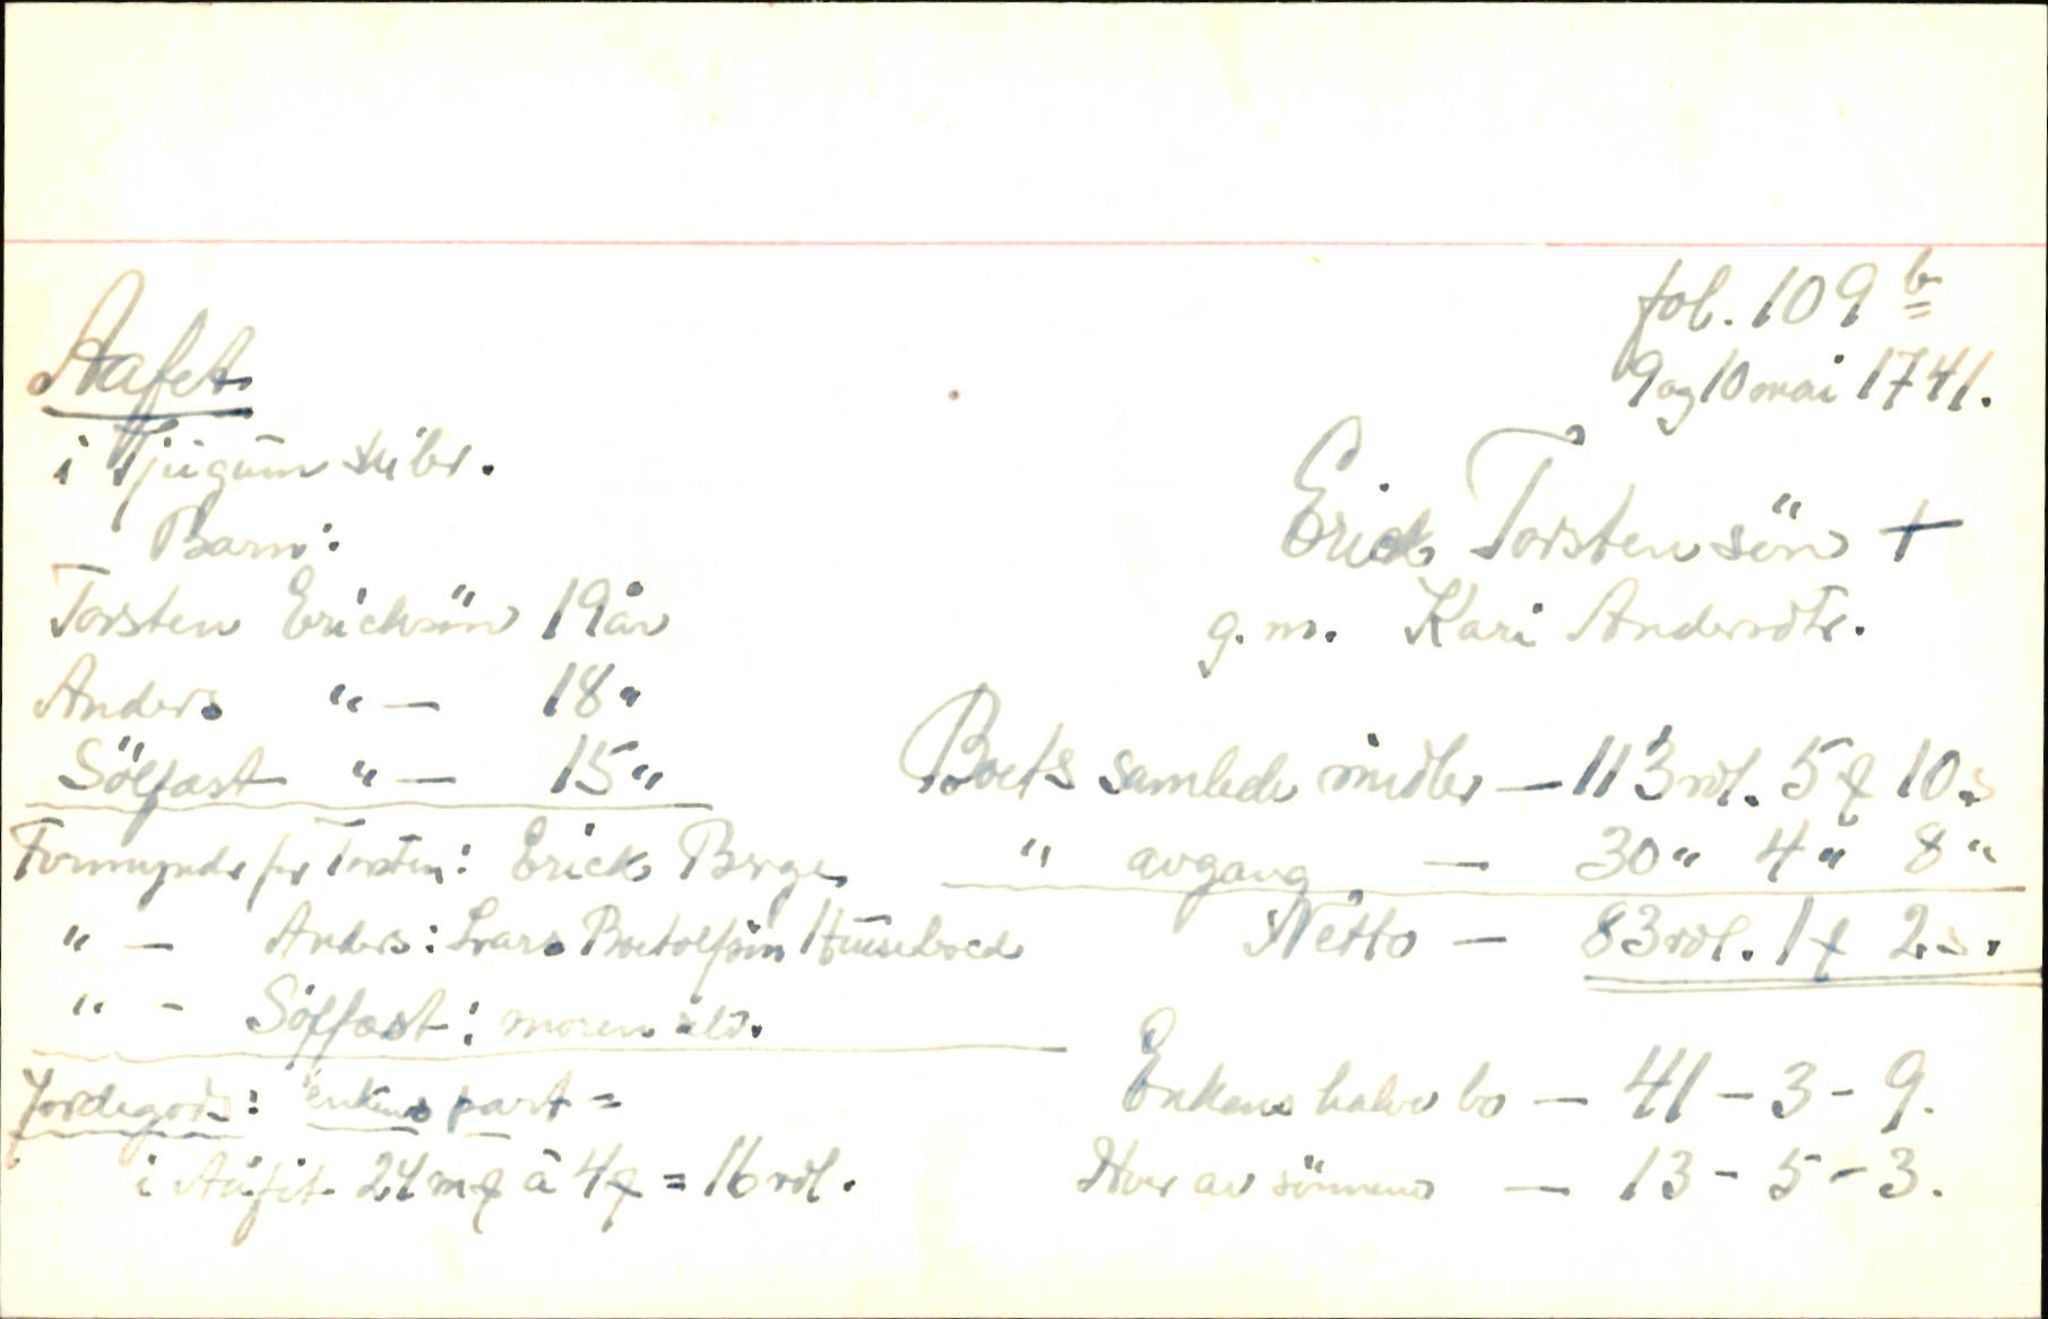 fol. 109 b
9 og 10 mai 1741.
Aafet
i Tjugum skibr.
Erick Torstensön +
g. m. Kari Andersdtr.
Barn:
Torsten Ericksön 19 år
Anders " — 18 "
Sölfast " — 15 "
Formynder for Torsten: Erick Berge
" — Anders: Lars Boetolfsön Huseboe
" - Sölfast: moren
Jordegods: enkens part =
i Aafet 24 m𝓁 à 4 𝓁 = 16 rdl.
Boets samlede midler — 113 rdl. 5 𝓁 10 s
" avgang — 30 " 4 " 8 "
Netto — 83 rdl. 1 𝓁 2 s.
Enkens halve bo — 41 - 3 - 9.
Hver av sönnene — 13 - 5 - 3.